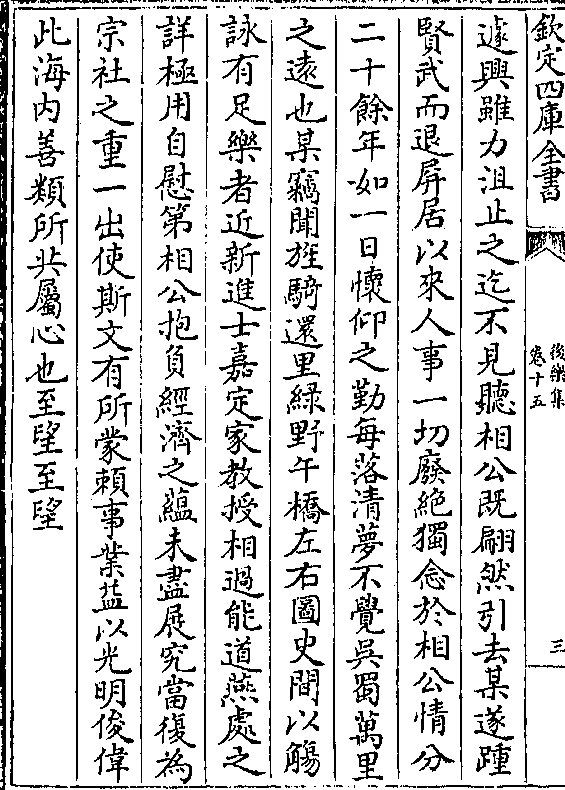 欽定四庫全書
後樂集
卷十五
三
遽興雖力沮止之迄不見聽相公既翩然引去某遂踵
賢武而退屏居以來人事一切廢絶獨念於相公情分
二十餘年如一日懷仰之勤每落清夢不覺吳蜀萬里
之遠也某竊聞旌騎還里緑野午橋左右圖史間以觴
詠有足樂者近新進士嘉定家教授相過能道燕處之
詳極用自慰第相公抱負經濟之藴未盡展究當復為
宗社之重一出使斯文有所蒙頼事業益以光明俊偉
此海内善類所共屬心也至望至望